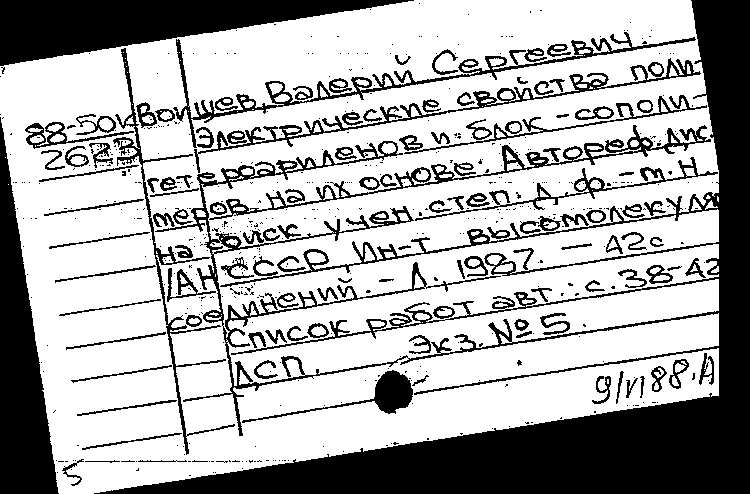 88-50к Воищев, Валерий Сергеевич.
Электрические свойства поли-
гетероариленов и блок-сополи-
меров на их основе: Автореф. дис.
на соиск. учен. степ. д. ф.-м. н.
/АН СССР, Ин-т высомолекуля
соединений. - Л., 1987. - 42с.
Список работ авт.: с. 38-42
ДСП. Экз. № 5.
9/VI 88. А
5